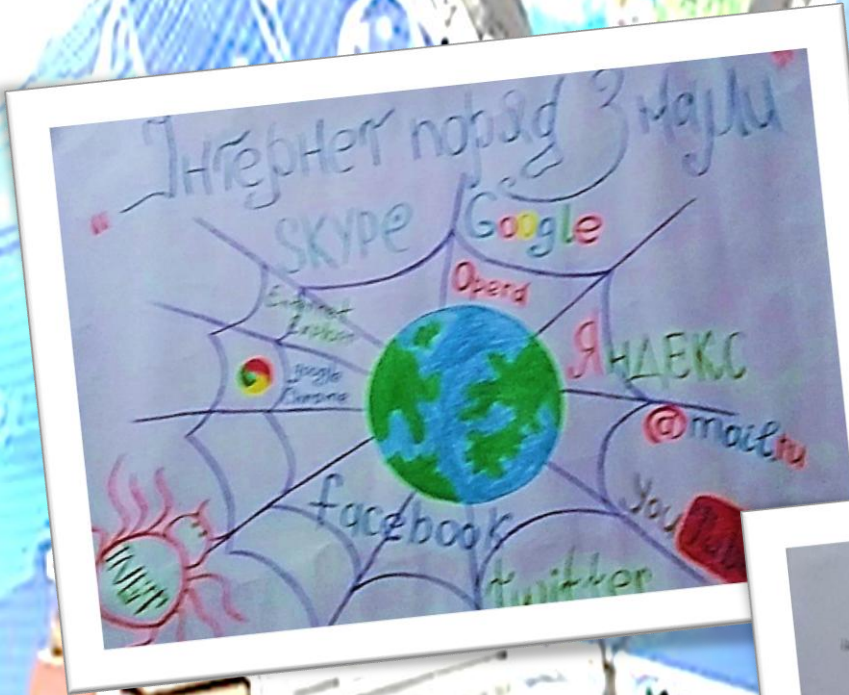 Інтернет поряд з нами
SKYPe
Google
Opera
Internet
Explorer
google
Chrome
ЯНДЕКС
@mail.ru
You Tube
facebook
twitter
INET